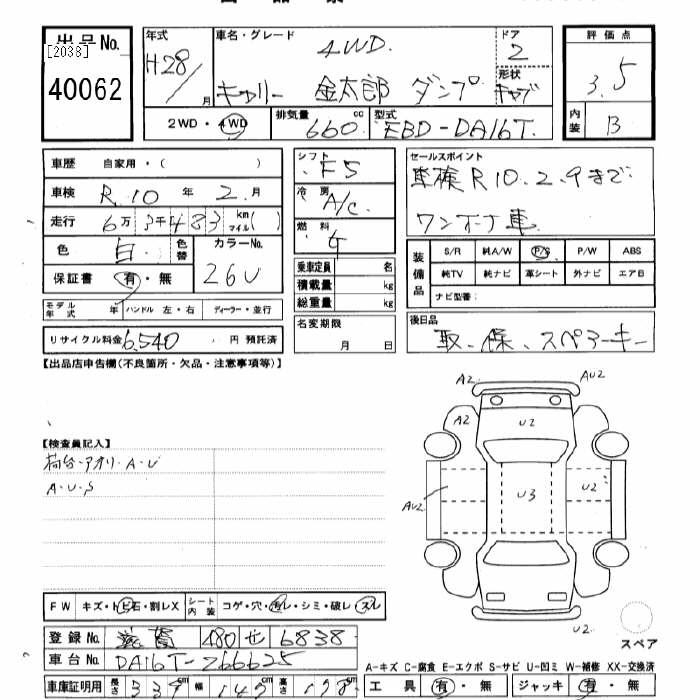 出品No. [2038]
40062
年式 H28/ 月
車名・グレード 4WD. キャリー 金太郎 ダンプ
ドア 2
形状 キャブ
評価点 3.5
内装 B
2WD・4WD
排気量 660 cc
型式 EBD-DA16T.
車歴 自家用・( )
車検 R.10 年 2.月
走行 6万3千483 km マイル( )
色 白 色替
カラーNo. 26U
保証書 有・無
モデル年式 年 ハンドル 左・右 ディーラー・並行
リサイクル料金 6,540 円 預託済
シフト F5
冷房 A/C
燃料 G
乗車定員 名
積載量 kg
総重量 kg
名変期限 月 日
セールスポイント
車検R10.2.9まで
ワンオーナ車
装備品 S/R 純A/W P/S P/W ABS
純TV 純ナビ 革シート 外ナビ エアB
ナビ型番:
後日品
取、保、スペアーキー
【出品店申告欄(不良箇所・欠品・注意事項等)】
【検査員記入】
荷台・アオリ・A・U
A・U・S
A2 AU2
A2 U2
U3 U2
AU2
U2
スペア
FW キズ・トビ石・割レX シート内装 コゲ・穴・汚レ・シミ・破レ・スレ
登録No. 滋賀 480 せ 6838
車台No. DA16T-266625
車庫証明用 長さ 339 cm 幅 147 cm 高さ 178 cm
A-キズ C-腐食 E-エクボ S-サビ U-凹ミ W-補修 XX-交換済
工具 有・無 ジャッキ 有・無